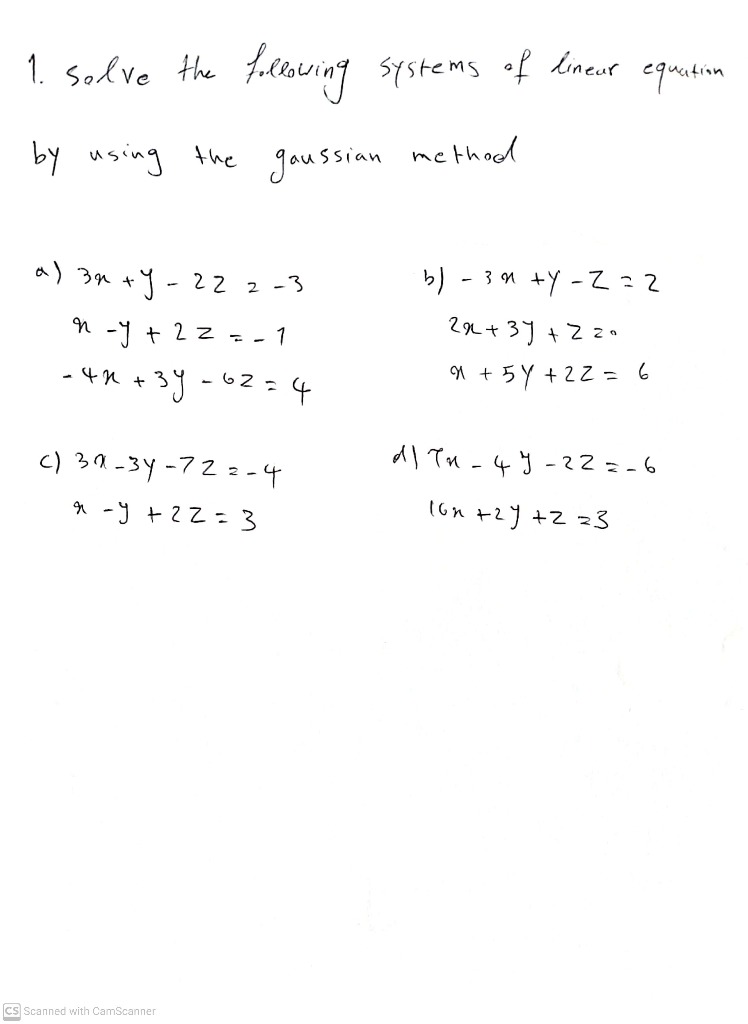 1. Solve the following systems of linear equation
by using the gaussian method
a) 3x + y - 2z = -3
x - y + 2z = -1
-4x + 3y - 6z = 4
b) -3x + y - z = 2
2x + 3y + z = 0
x + 5y + 2z = 6
c) 3x - 3y - 7z = -4
x - y + 2z = 3
d) 7x - 4y - 2z = -6
16x + 2y + z = 3
CS Scanned with CamScanner